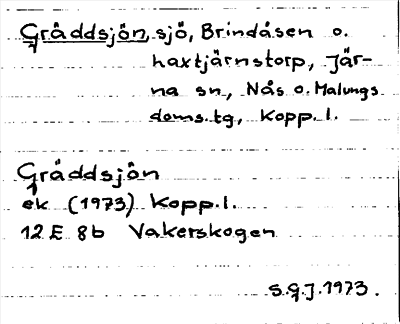 Gräddsjön, sjö, Brindåsen o.
haxtjärnstorp, Jär-
na sn, Nås o. Malungs
doms. tg, Kopp. l.
Gräddsjön
ek (1973) Kopp. l.
12 E 8b Vakerskogen
S.G.J. 1973.